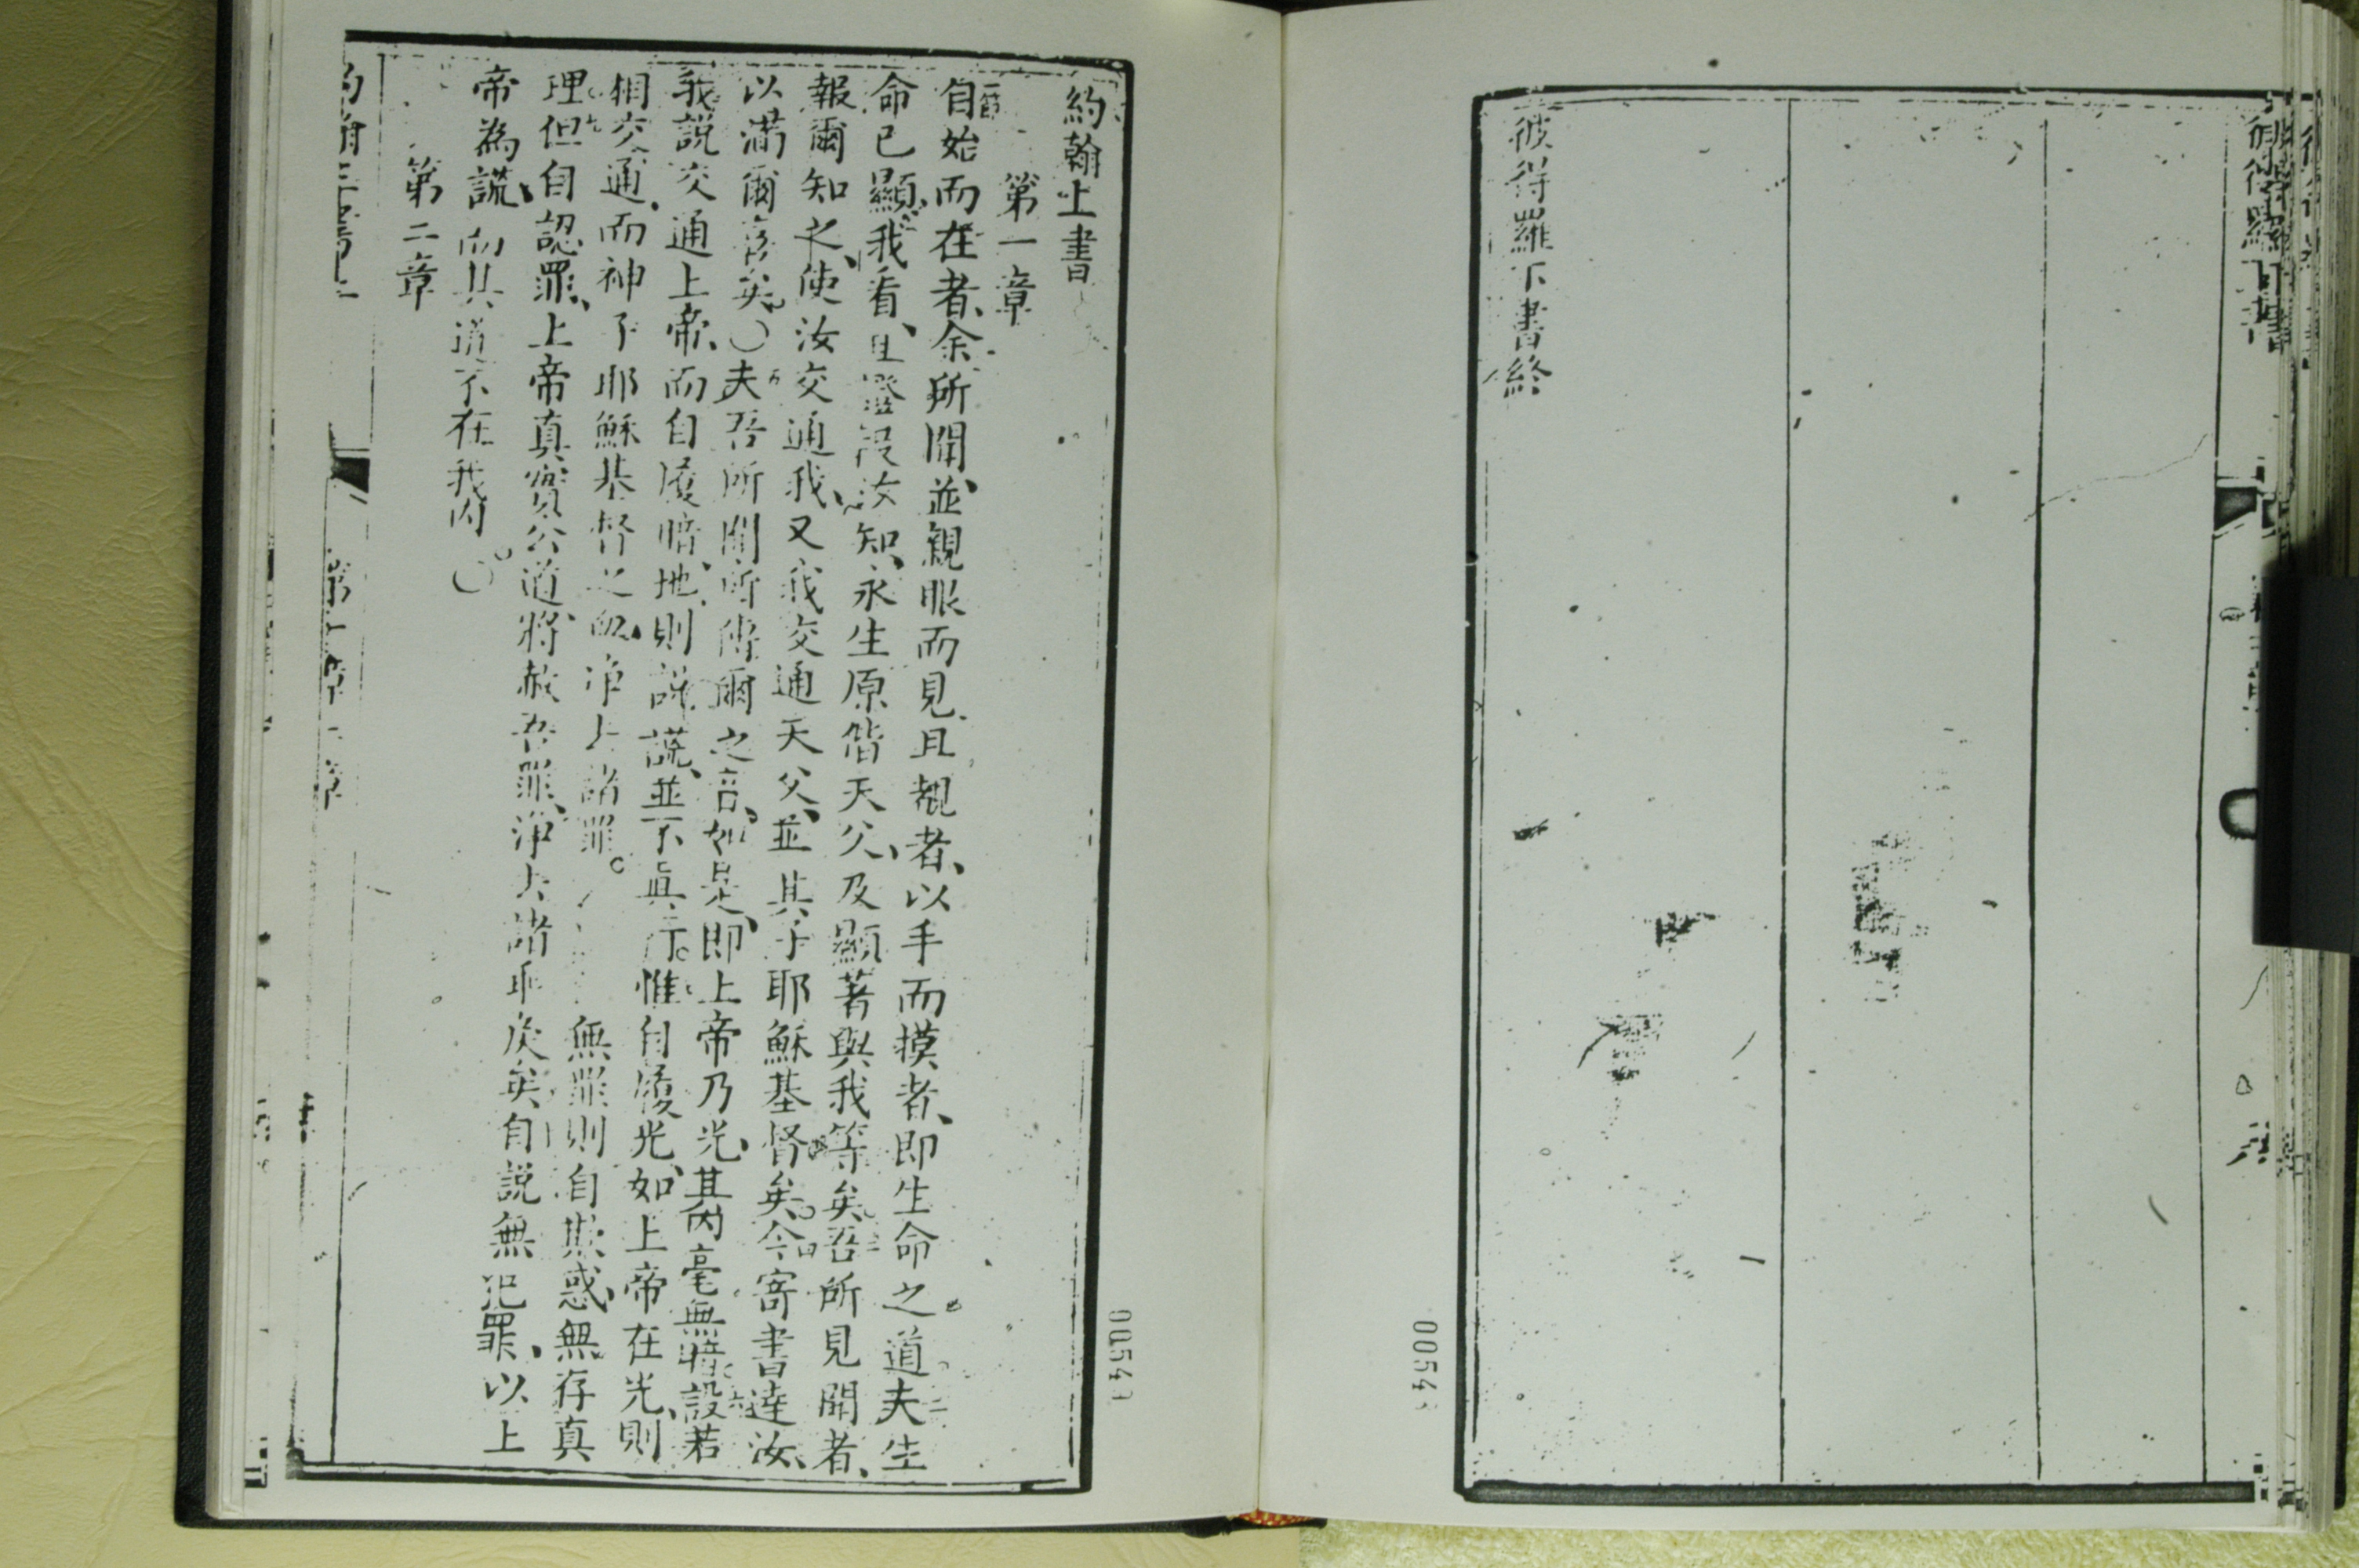 彼得羅下書終
約翰上書
第一章
自始而在者、余所聞、並親眼而見、且覩者、以手而摸者、即生命之道夫生
命已顯、我看、且證設汝知、永生原偕天父、及顯著與我等矣吾所見聞者、
報爾知之、使汝交通我、又我交通天父、並其子耶穌基督矣今寄書達汝、
以滿爾喜矣。〇夫吾所聞所傳爾之言、如是、即上帝乃光、其內毫無暗設若
我說交通上帝、而自履暗地、則說謊、並不真行。惟自履光、如上帝在光、則
相交通、而神子耶穌基督之血、淨去諸罪。無罪則自欺惑、無存真
理。但自認罪、上帝真實公道、將赦吾罪、淨去諸非矣自說無犯罪、以上
帝為謊、而其道不在我內。〇
第二章
00549
0054